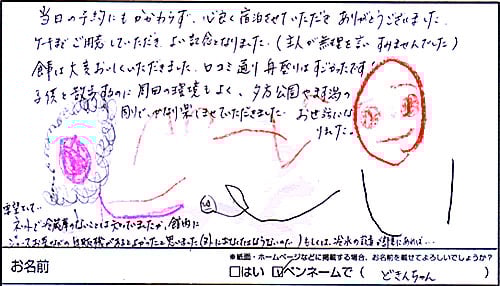 当日の予約にもかかわらず、心良く宿泊させていただき ありがとうございました。
ケーキまでご用意していただき、よい記念となりました。(主人が無理を言い すみませんでした)
食事は大変おいしくいただきました。口コミ通り舟盛りはすごかったです!
子供と散歩するのに周囲の環境もよく、夕方公園や
周りで、かなり楽しませていただきました。 お世話に
なりました。
要望として…
ネットで冷蔵庫のないことは知っていましたが、館内に
お茶などの自販機があるとよかったと思いました もしくは、冷水の
※紙面・ホームページなどに掲載する場合、お名前を載せてよろしいでしょうか?
お名前 □はい ☑ペンネームで ( どきんちゃん )